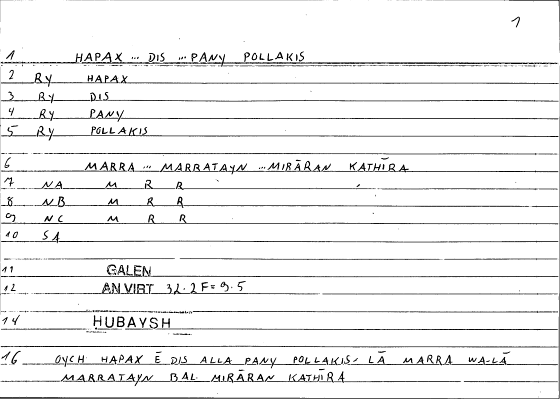 1
1 HAPAX ... DIS ... PANY POLLAKIS
2 RY HAPAX
3 RY DIS
4 RY PANY
5 RY POLLAKIS
6 MARRA ... MARRATAYN ... MIRĀRAN KATHĪRA
7 NA M R R
8 NB M R R
9 NC M R R
10 SA
11 GALEN
12 AN VIRT 32.2 F = 9.5
14 HUBAYSH
16 OYCH HAPAX Ē DIS ALLA PANY POLLAKIS- LĀ MARRA WA-LĀ
MARRATAYN BAL MIRĀRAN KATHĪRA